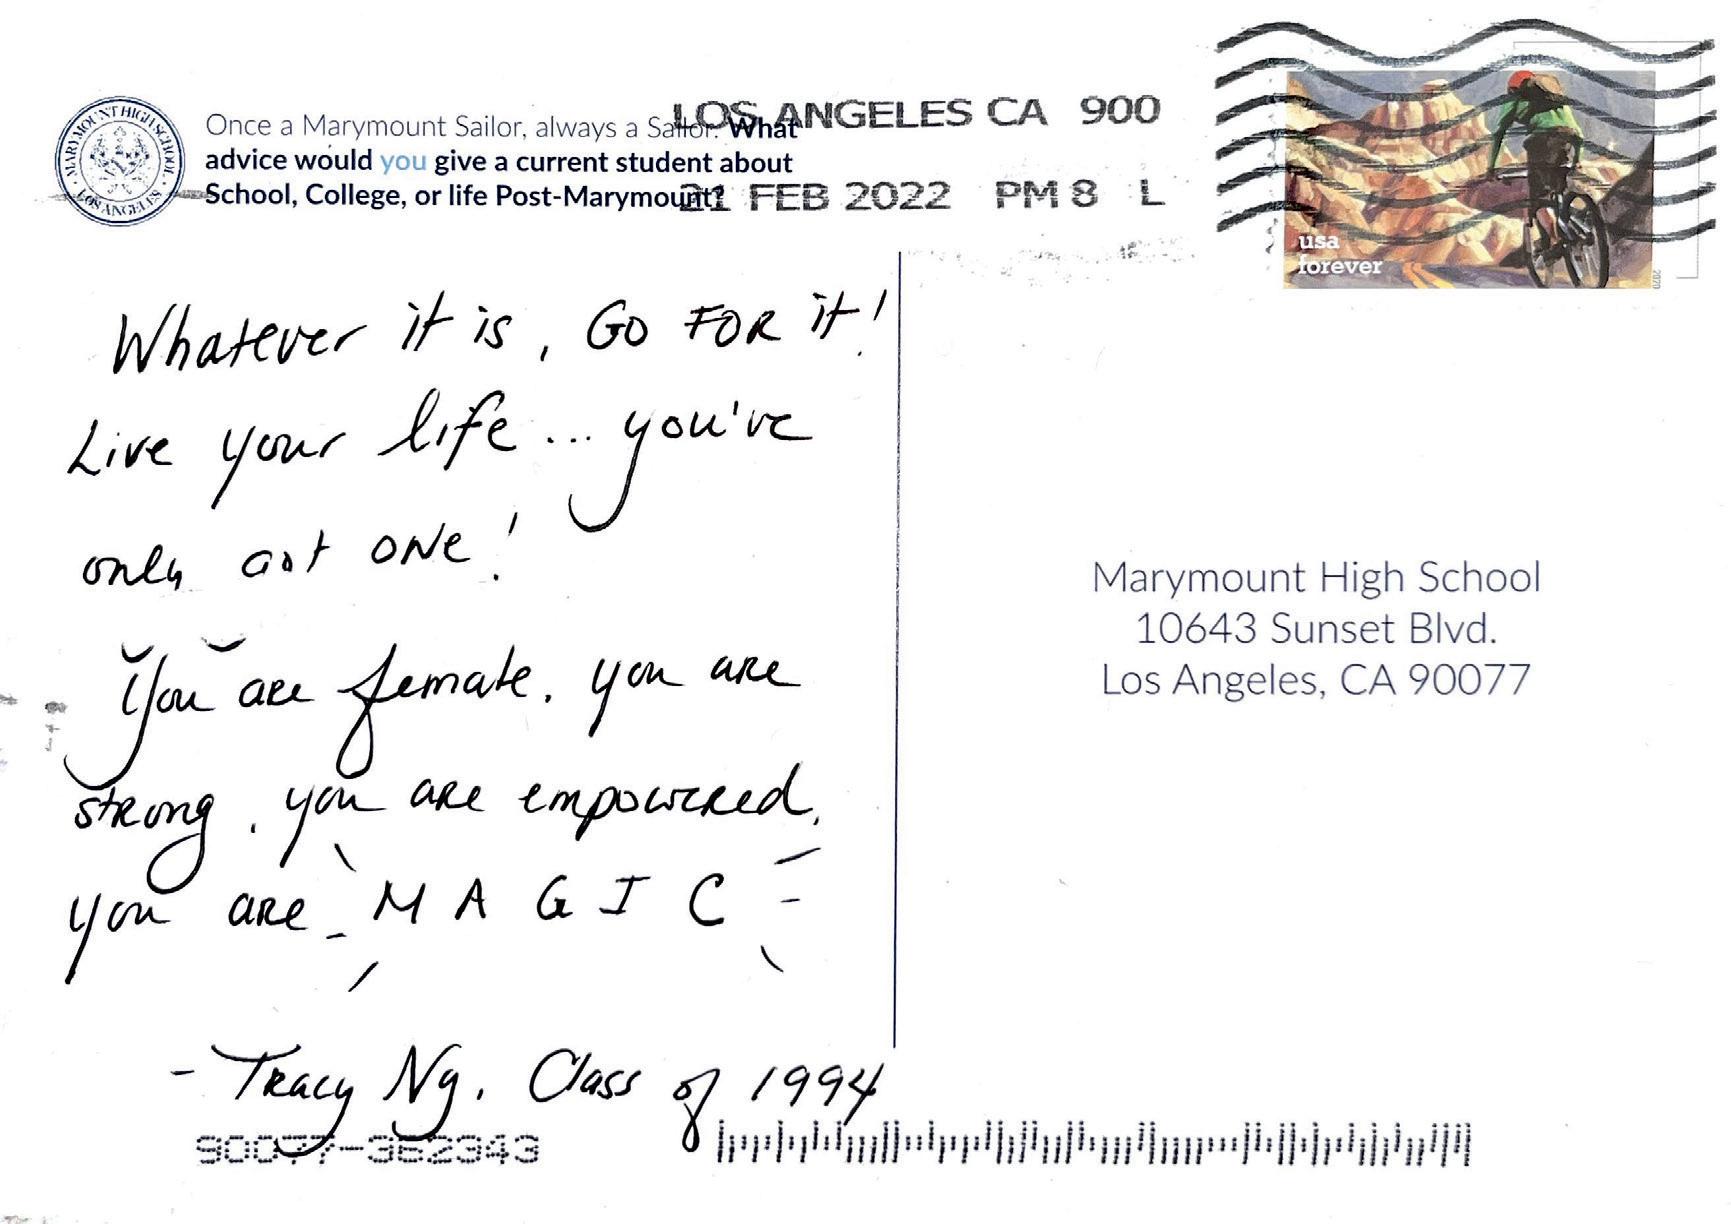 MARYMOUNT HIGH SCHOOL
LOS ANGELES
Once a Marymount Sailor, always a Sailor. What
advice would you give a current student about
School, College, or life Post-Marymount?
LOS ANGELES CA 900
21 FEB 2022 PM 8 L
usa
forever
2020
Whatever it is, GO FOR it!
Live your life ... you've
only got ONe!
You are female. you are
strong. you are empowered.
you are M A G I C
- Tracy Ng. Class of 1994
Marymount High School
10643 Sunset Blvd.
Los Angeles, CA 90077
90077-362343